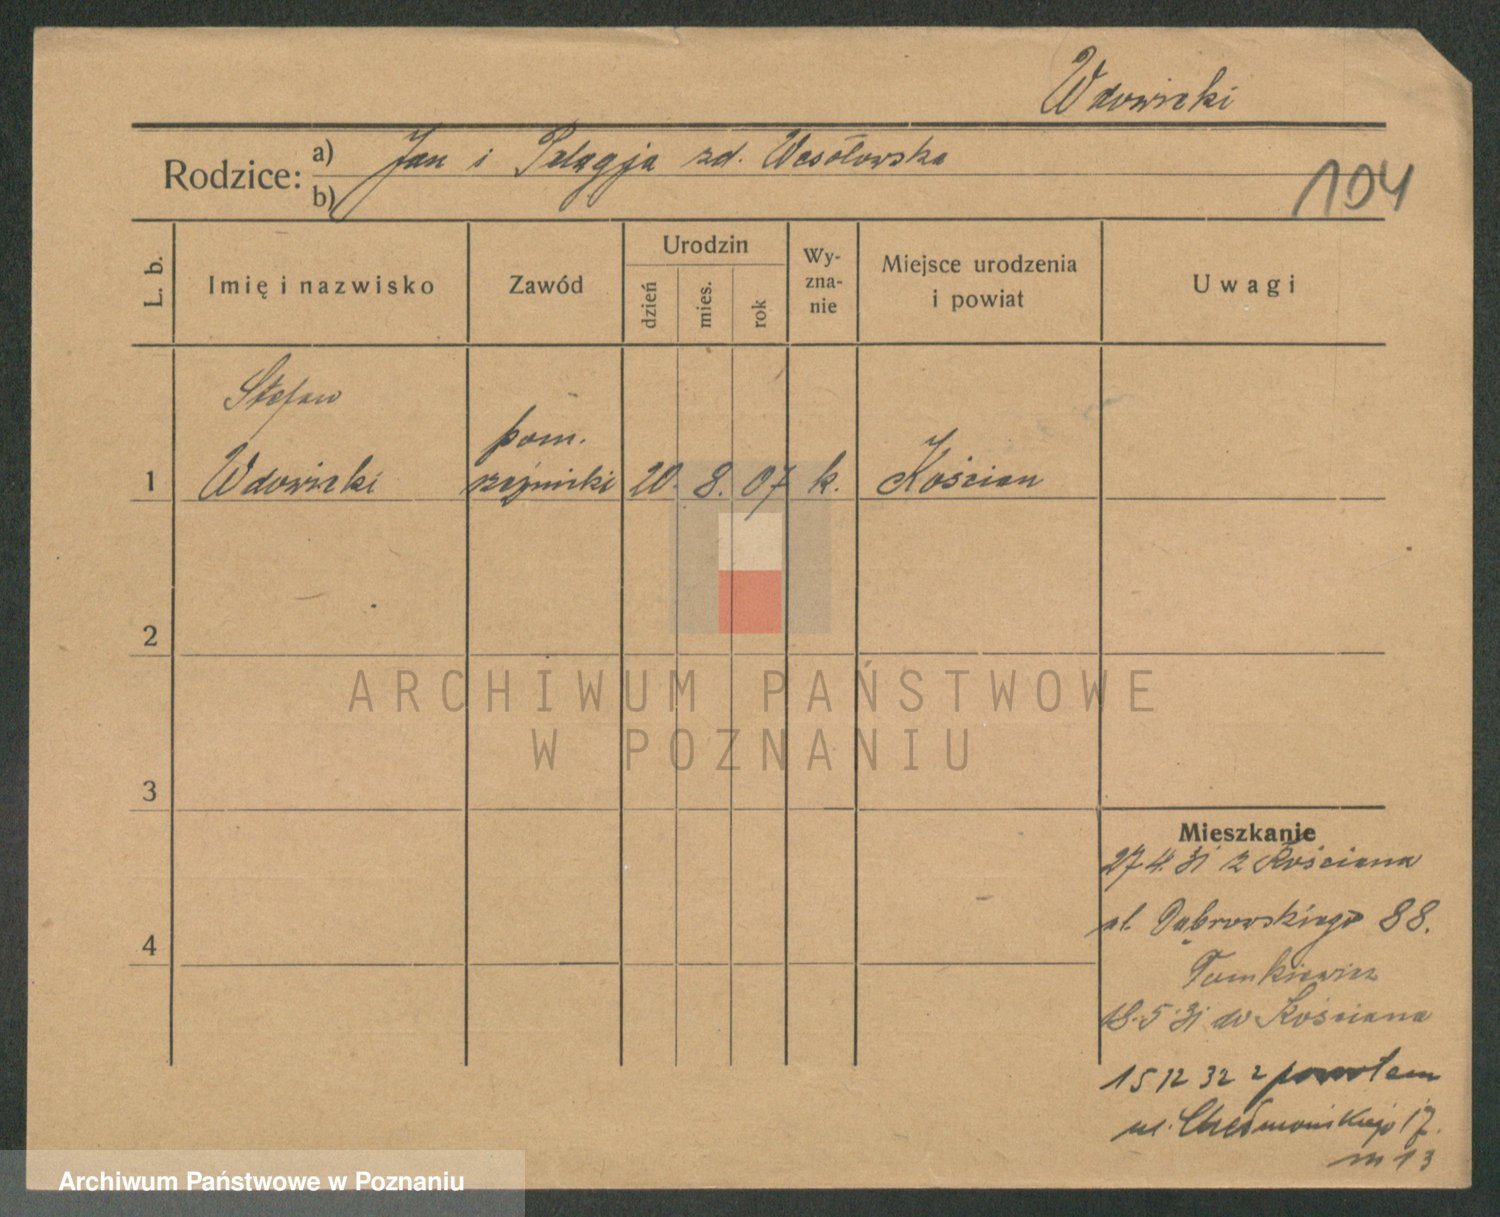 Wdowicki
Rodzice: a) Jan i Pelagja zd. Wesołowska
b)
104
L. b.
Imię i nazwisko
Zawód
Urodzin
dzień
mies.
rok
Wy-
zna-
nie
Miejsce urodzenia
i powiat
Uwagi
Stefan
pom.
1 Wdowicki rzeźnicki 20. 8. 07 k. Kościan
2
3
4
ARCHIWUM PAŃSTWOWE
W POZNANIU
Mieszkanie
27.4.31 z Kościana
ul. Dąbrowskiego 88.
Tomkiewicz
18.5.31 do Kościana
15 12 32 z powrotem
ul. Chełmońskiego 17.
m 13
Archiwum Państwowe w Poznaniu